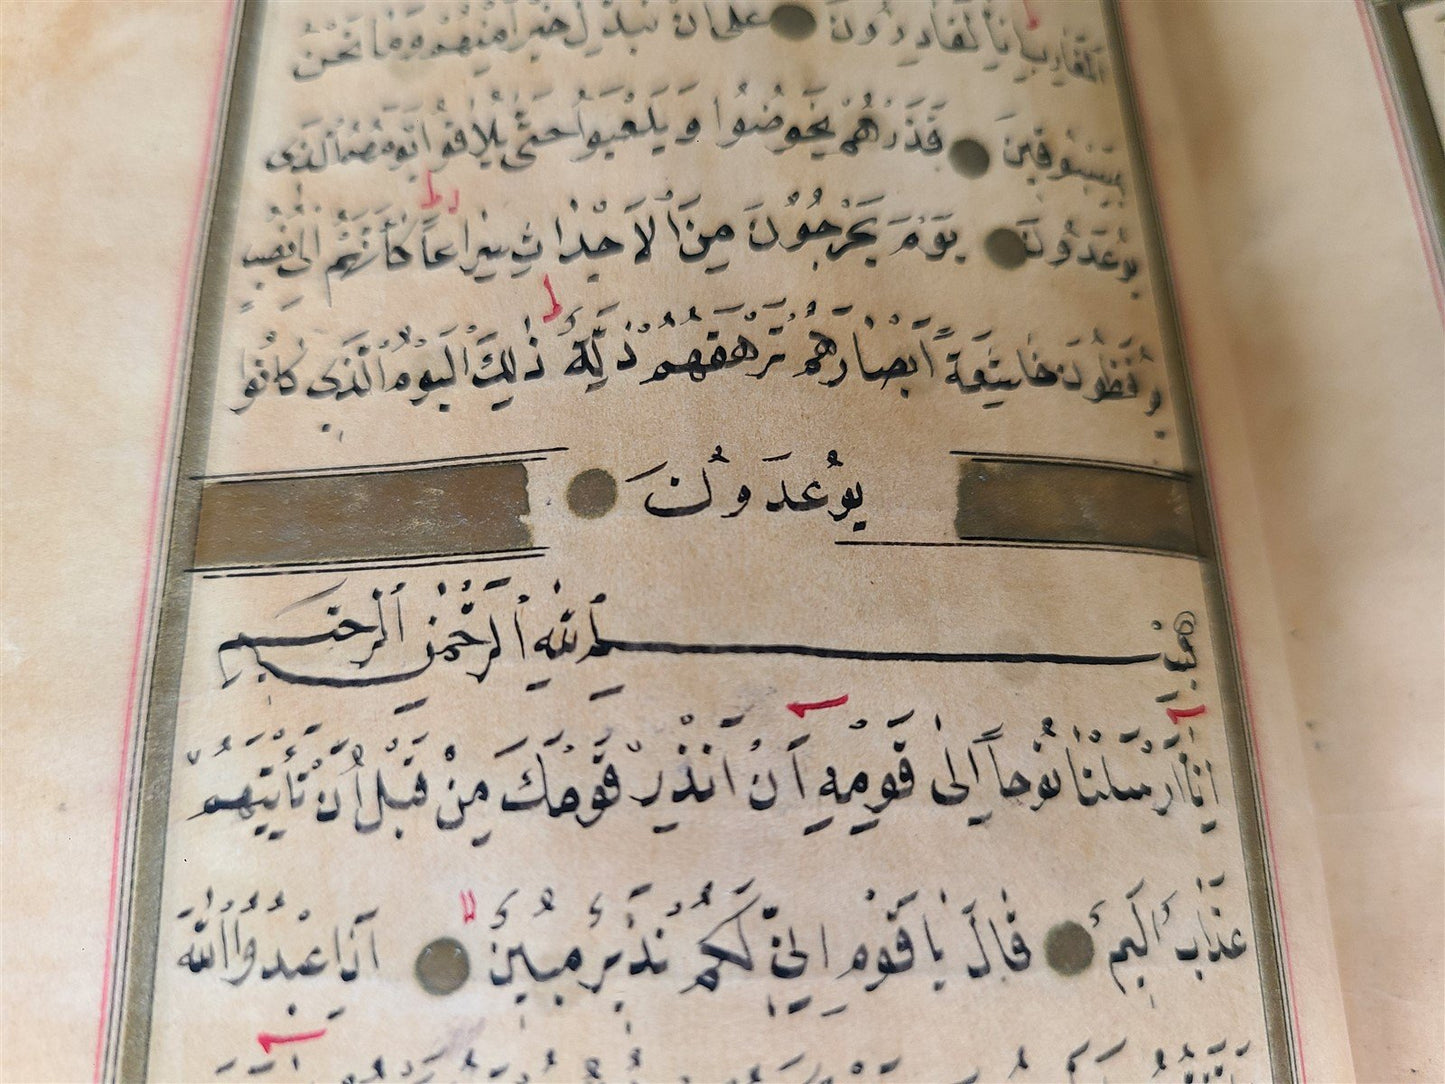 الْمَغَارِبِ اِنَّا لَقَادِرُونَ عَلٰى اَنْ نُبَدِّلَ خَيْراً مِنْهُمْ وَمَا نَحْنُ
بِمَسْبُوقِينَ فَذَرْهُمْ يَخُوضُوا وَيَلْعَبُوا حَتّٰى يُلَاقُوا يَوْمَهُمُ الَّذِى
يُوعَدُونَ يَوْمَ يَخْرُجُونَ مِنَ الْاَجْدَاثِ سِرَاعاً كَاَنَّهُمْ اِلٰى نُصُبٍ
يُوفِضُونَ خَاشِعَةً اَبْصَارُهُمْ تَرْهَقُهُمْ ذِلَّةٌ ذٰلِكَ الْيَوْمُ الَّذِى كَانُوا
يُوعَدُونَ
بِسْمِ اللّٰهِ الرَّحْمٰنِ الرَّحِيمِ
اِنَّا اَرْسَلْنَا نُوحاً اِلٰى قَوْمِهِ اَنْ اَنْذِرْ قَوْمَكَ مِنْ قَبْلِ اَنْ يَأْتِيَهُمْ
عَذَابٌ اَلِيمٌ قَالَ يَا قَوْمِ اِنِّى لَكُمْ نَذِيرٌ مُبِينٌ اَنِ اعْبُدُوا اللّٰهَ